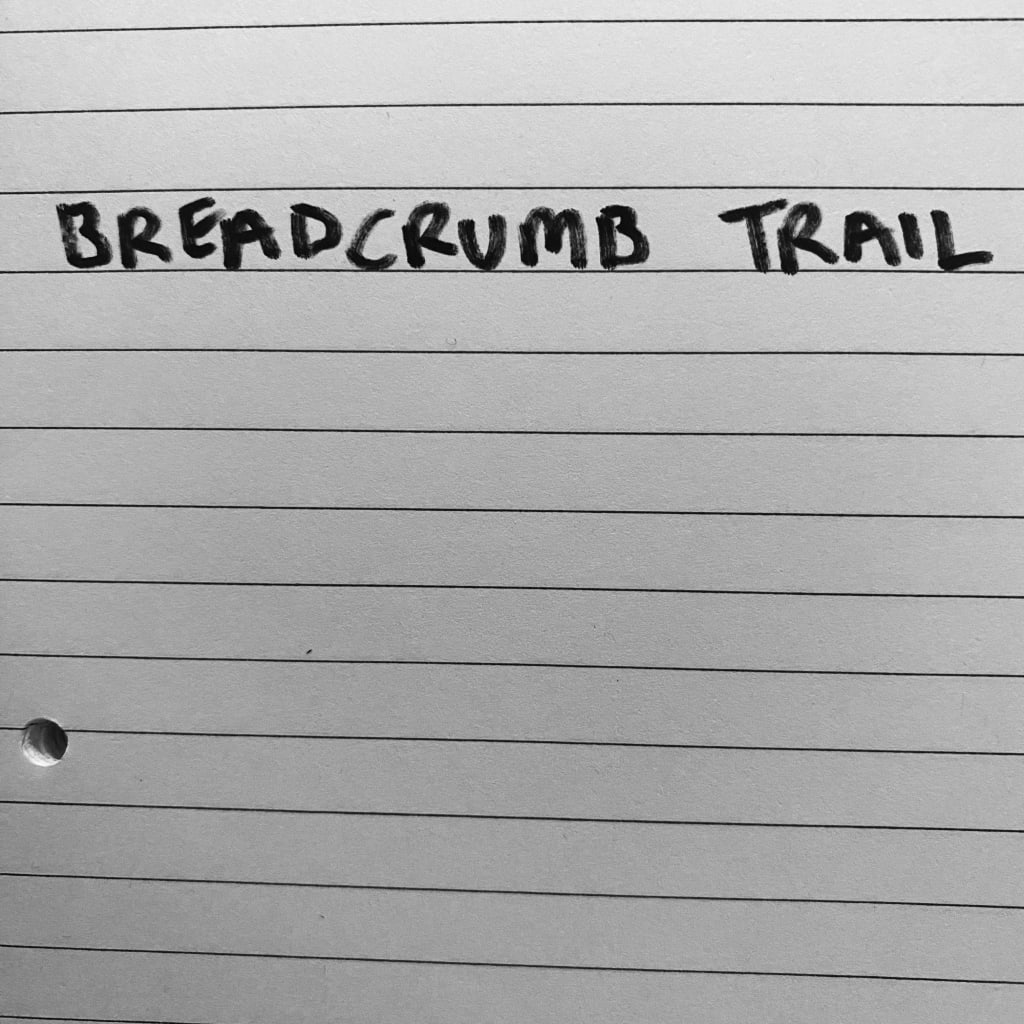 BREADCRUMB TRAIL